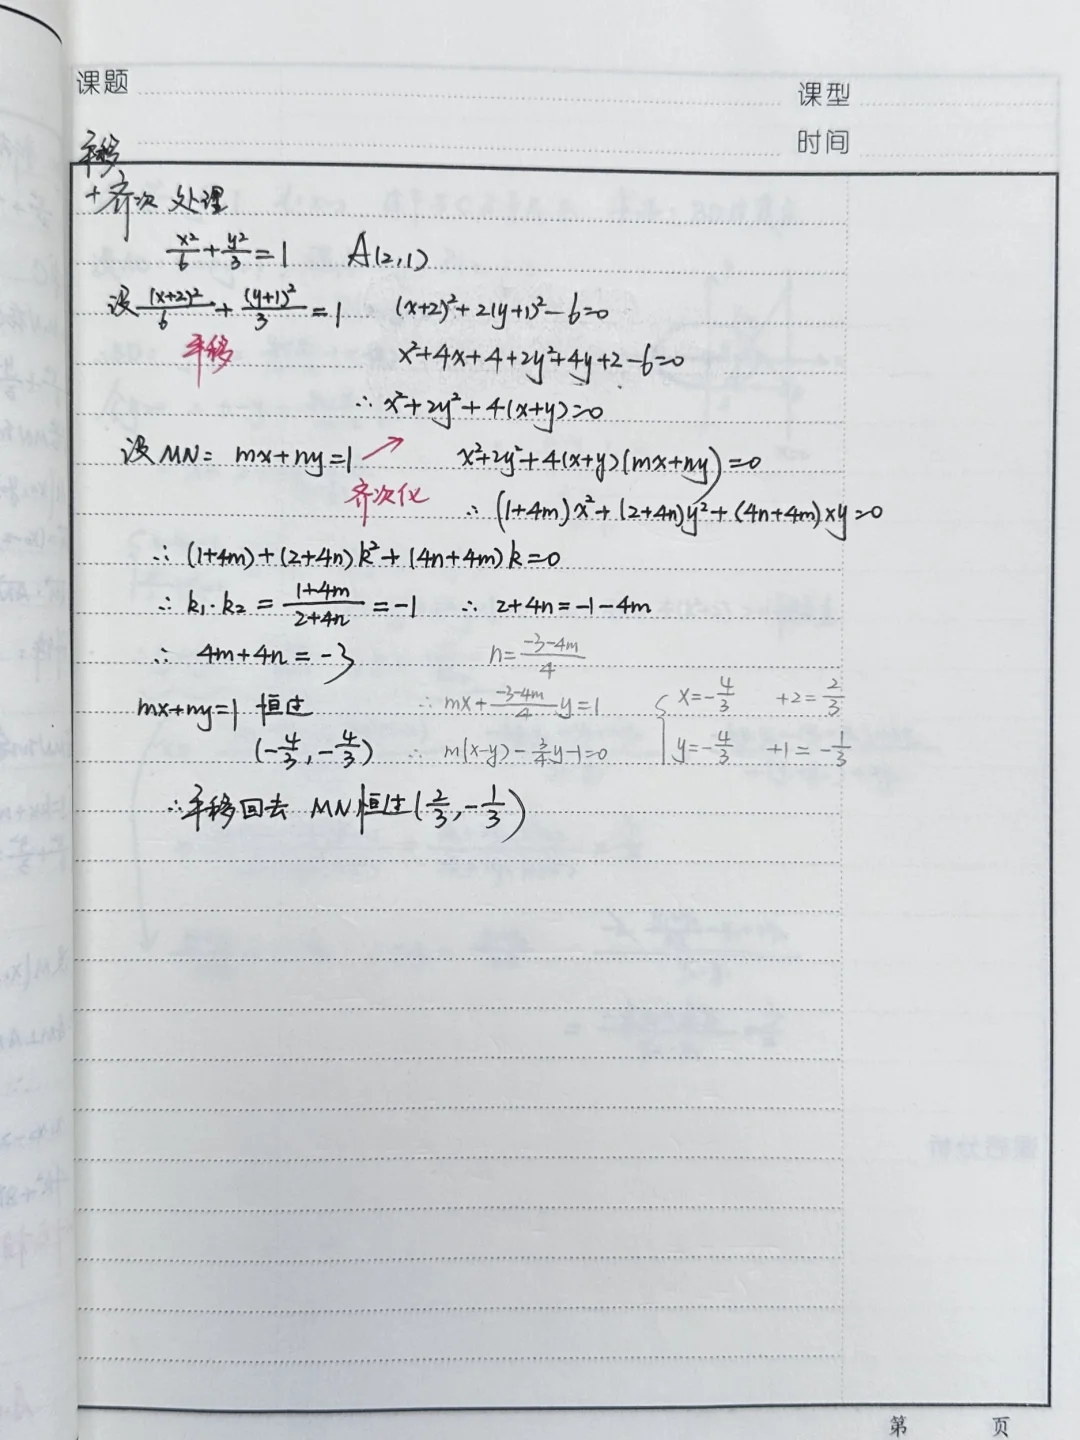 课题
课型
时间
平移
+齐次 处理
x²/6 + y²/3 = 1   A(2,1)
设 (x+2)²/6 + (y+1)²/3 = 1   (x+2)²+2(y+1)²-6=0
平移   x²+4x+4+2y²+4y+2-6=0
∴ x²+2y²+4(x+y)=0
设MN: mx+ny=1   x²+2y²+4(x+y)(mx+ny)=0
齐次化   ∴ (1+4m)x²+(2+4n)y²+(4n+4m)xy=0
∴ (1+4m)+(2+4n)k²+(4n+4m)k=0
∴ k₁·k₂ = (1+4m)/(2+4n) = -1   ∴ 2+4n=-1-4m
∴ 4m+4n=-3   n=(-3-4m)/4
mx+ny=1 恒过   ∴ mx+(-3-4m)/4 y=1   x=-4/3   +2=2/3
(-4/3, -4/3)   ∴ m(x-y)-3/4y-1=0   y=-4/3   +1=-1/3
∴平移回去 MN恒过(2/3, -1/3)
第 页